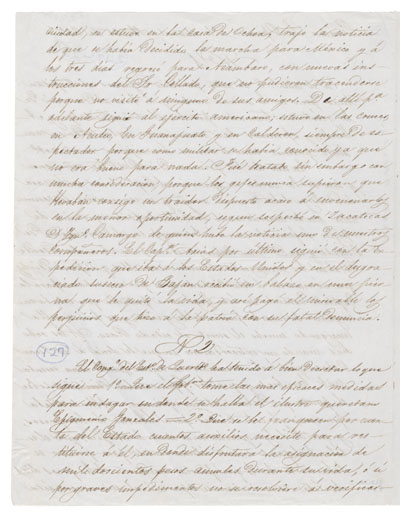 ciudad, se estuvo en la casa de Ochoa, trajo la noticia
de que se habia decidido la marcha para México y á
los tres dias regresó para Acámbaro, con nuevas ins-
trucciones del Sr. Collado, que no pudieron traducirse
porque no visitó á ninguno de sus amigos. De allí pª
adelante siguió el ejercito americano; estuvo en las cruces
en Aculco, en Guanajuato y en Calderon, siempre de es-
pectador porque como militar se habia conocido ya que
no era bueno para nada. Fué tratado sin embargo con
mucha consideracion porque los gefes nunca supieron que
llevaban consigo un traidor dispuesto acaso á
en la menor oportunidad, segun sospechó en Zacatecas
Camargo de quien hubo la noticia uno de nuestros
compañeros. El Capⁿ Arias por último siguió con la es-
pedicion que iba á los Estados Unidos y en el desgra-
ciado suceso de Bajan recibió un balazo en una pierna
na que le quitó la vida, y así pagó el miserable los
perjuicios que hizo á la patria con su fatal denuncia.
Nº 2.
727
El Congº del Estº de Querétº ha tenido á bien decretar lo que
sigue = 1º Que el Gobº tome las mas eficaces medidas
para indagar en donde se halla el ilustre queretano
Epigmenio Gonzales = 2º Que se le franqueen por cuen-
ta del Estado cuantos auxilios necesite para res-
tituirse á él en donde disfrutará la asignacion de
mil doscientos pesos anuales durante su vida, ó si
por graves impedimentos no se resolviere á verificar-